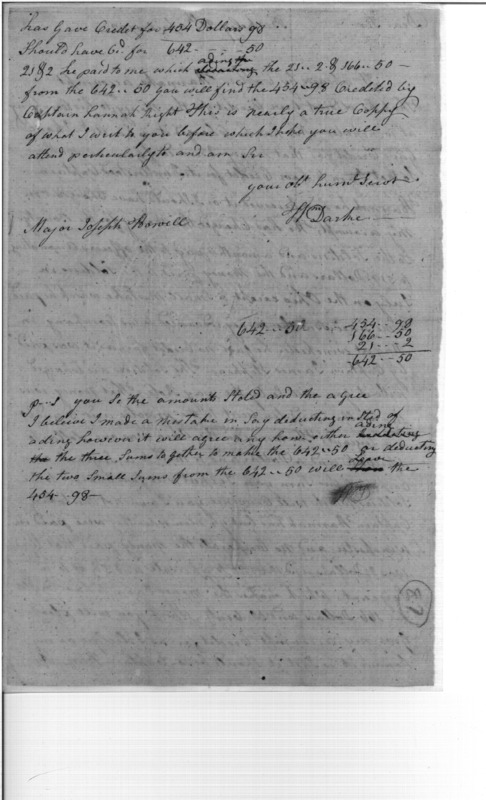 has Gave Credet for 454 Dollars 98
Should have Cd. for 642 - - - 50
21 & 2 he paid to me which ading to deducting the 21 - - 2 & 166 - - 50 -
from the 642 - - 50 you will find the 454 - 98 Credeted by
Captain Hannah Right This is nearly a true Coppy
of what I wert to you before which I hope you will
attend perticularily to and am Sir
your Obt. huml. Servt.
Wm Darke
Major Joseph Howell
642 - - 50 454 - - 98
166 - - 50
21 - - 2
642 - - 50
p - s you Se the amount Stated and the agree
I beleive I made a mistake in Say deducting in Sted of
ading howevor it will agree any how either ading
the the three Sums to gether to make the 642 - - 50 or deducting
the two Small Sums from the 642 - - 50 will Leave the
454 - 98 -
WD